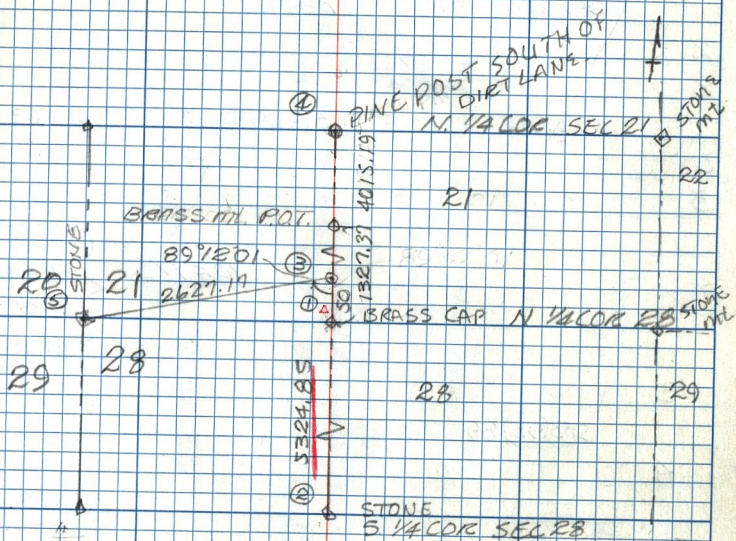 ④ PINE POST SOUTH OF
DIRT LANE.
N. 1/4 COR SEC 21
STONE
mt.
22
21
4015.19
BRASS mt. P.O.T.
89°12'01
③
1327.37
STONE
20
21
⑤
2627.17
①
50
BRASS CAP N 1/4 COR 28
STONE
mt
28
29
5324.85
28
29
②
STONE
S 1/4 COR SEC 28